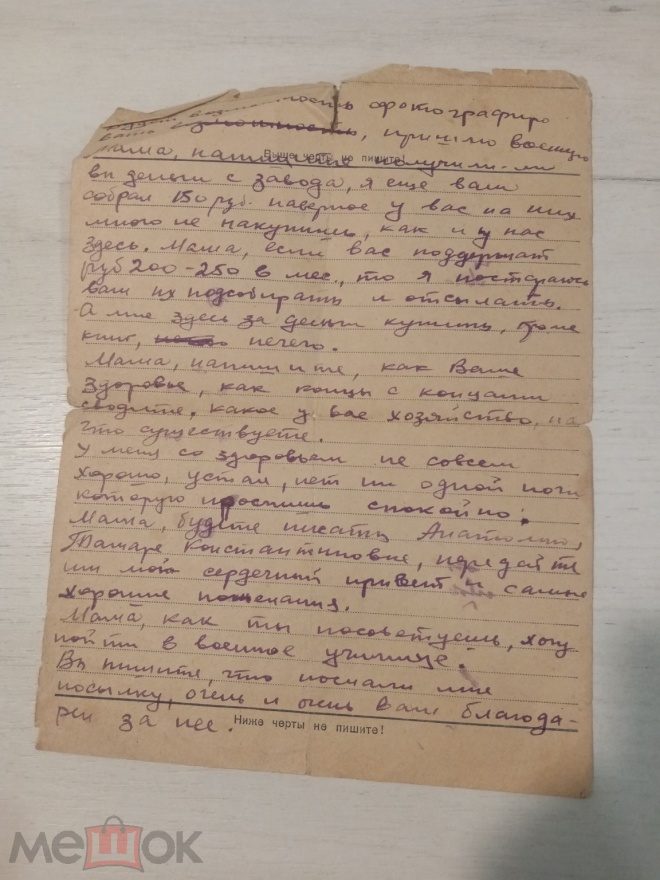 фотографиро
пришлю военную
Выше черты не пишите!
Мама, напишите получили-ли
вы деньги с завода, я еще вам
собрал 150 руб. наверное у вас на них
много не накупишь, как и у нас
здесь. Мама, если вас поддержат
руб 200-250 в мес., то я постараюсь
вам их подсобирать и отсылать.
А мне здесь за деньги купить, кроме
книг, нечего.
Мама, напишите, как Ваше
здоровье, как концы с концами
сводите, какое у вас хозяйство, на
что существуете.
У меня со здоровьем не совсем
хорошо, устал, нет ни одной ночи
которую проспишь спокойно.
Мама, будете писать Анатолию,
Тамаре Константиновне, передайте
им мой сердечный привет и самые
хорошие пожелания.
Мама, как ты посоветуешь, хочу
пойти в военное училище.
Вы пишите, что послали мне
посылку, очень и очень вам благода-
рен за нее.
Ниже черты не пишите!
мешок